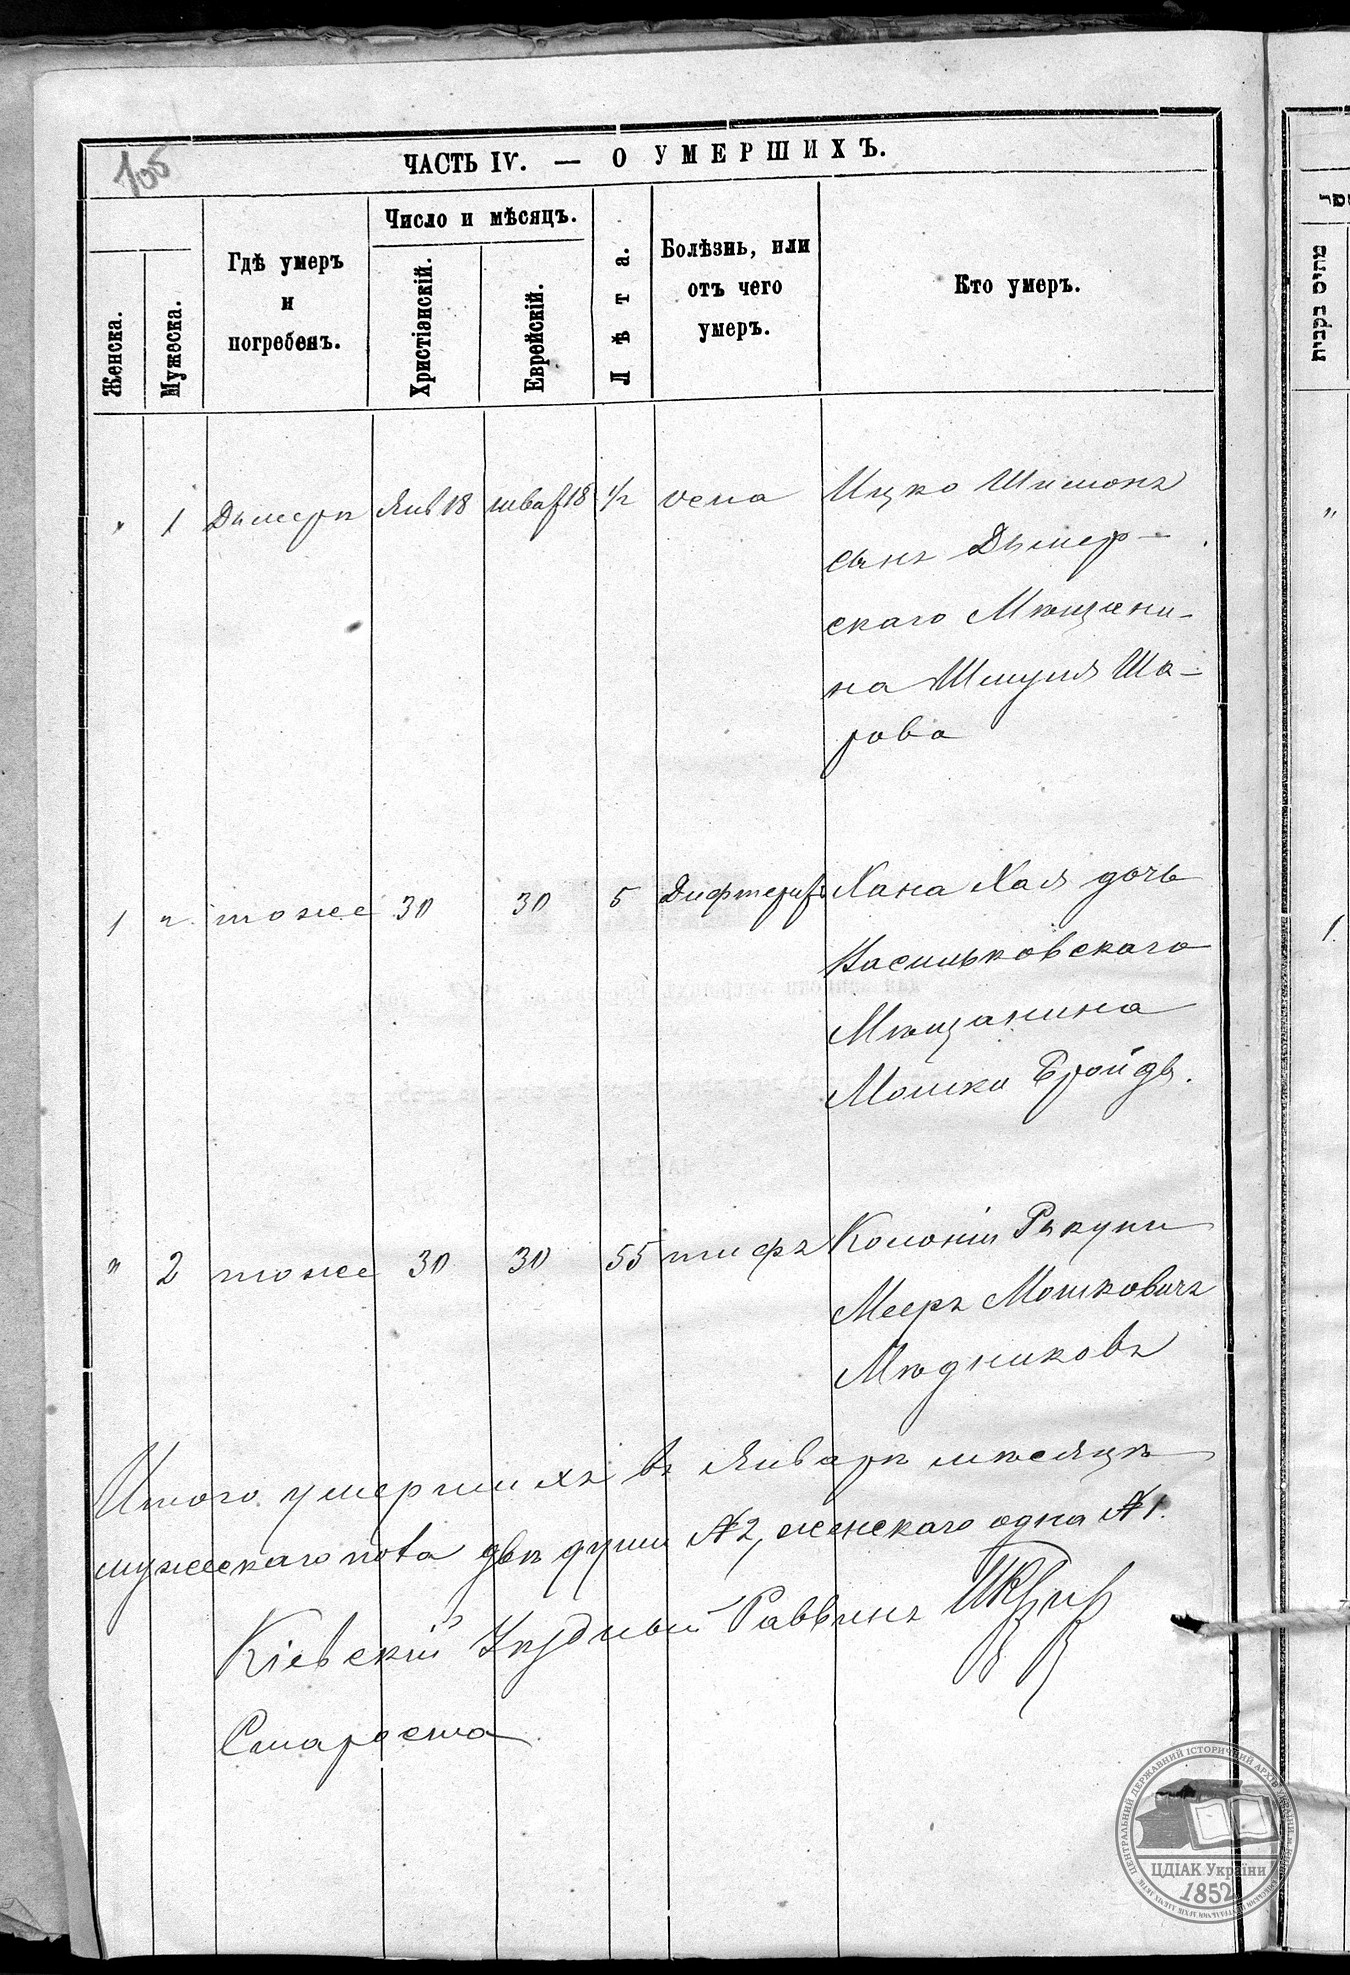 105
ЧАСТЬ IV. — О УМЕРШИХЪ.
Женска.
Мужеска.
Гдѣ умеръ
и
погребенъ.
Число и мѣсяцъ.
Христіянскій.
Еврейскій.
Лѣта.
Болѣзнь, или
отъ чего
умеръ.
Кто умеръ.
" 1 Дымеръ Янв 18 18 1/2 оспа Ицко Шимонъ
сынъ Дымер-
скаго Мѣщани-
на Шмуля Ша-
рова
1 " тоже 30 30 5 Дифтеритъ Хана Хая дочь
Васильковскаго
Мѣщанина
Мошка Бройде.
" 2 тоже 30 30 55 тифъ Колоніи Рыкуни
Мееръ Мошковичъ
Мѣдниковъ
Итого умершихъ въ Январѣ мѣсяцѣ
мужескаго пола двѣ души №2, женскаго одна №1.
Кіевскій Уѣздный Раввинъ
Староста
מתים
"
1.
ЦЕНТРАЛЬНИЙ ДЕРЖАВНИЙ ІСТОРИЧНИЙ АРХІВ УКРАЇНИ
ЦДІАК України
1852